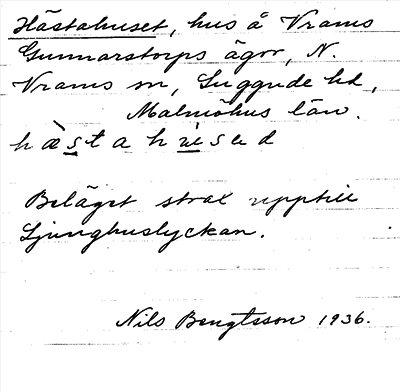 Hästahuset, hus å Vrams
Gunnarstorps ägor, N.
Vrams sn, Luggude hd,
Malmöhus län.
hästahused
Beläget strax upptill
Ljunghuslyckan.
Nils Bengtsson 1936.